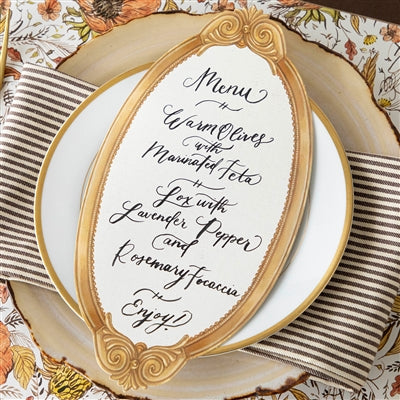 Menu
Warm Olives
with
Marinated Feta
Lox with
Lavender Pepper
and
Rosemary Focaccia
Enjoy!